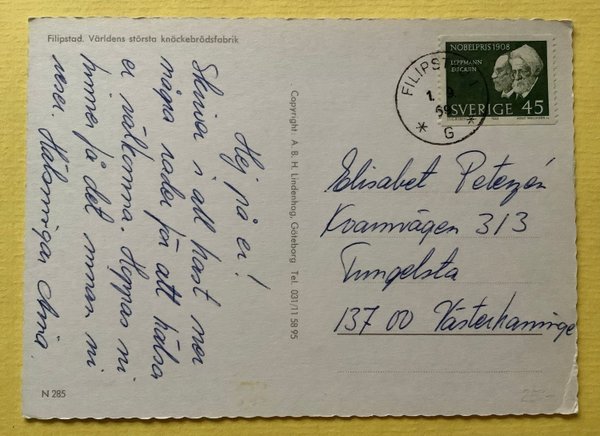 Filipstad. Världens största knäckebrödsfabrik
Hej på er!
Skriver i all hast ner
några rader för att hälsa
er välkomna. Hoppas ni
hinner få det innan ni
reser. Hälsningar Anna
Copyright: A. B. H. Lindenhag, Göteborg Tel. 031/11 58 95
N 285
NOBELPRIS 1908
LIPPMANN
EUCKEN
SVERIGE 45
FILIPST
G
Elisabet Petezén
Kvarnvägen 313
Tungelsta
137 00 Västerhaninge